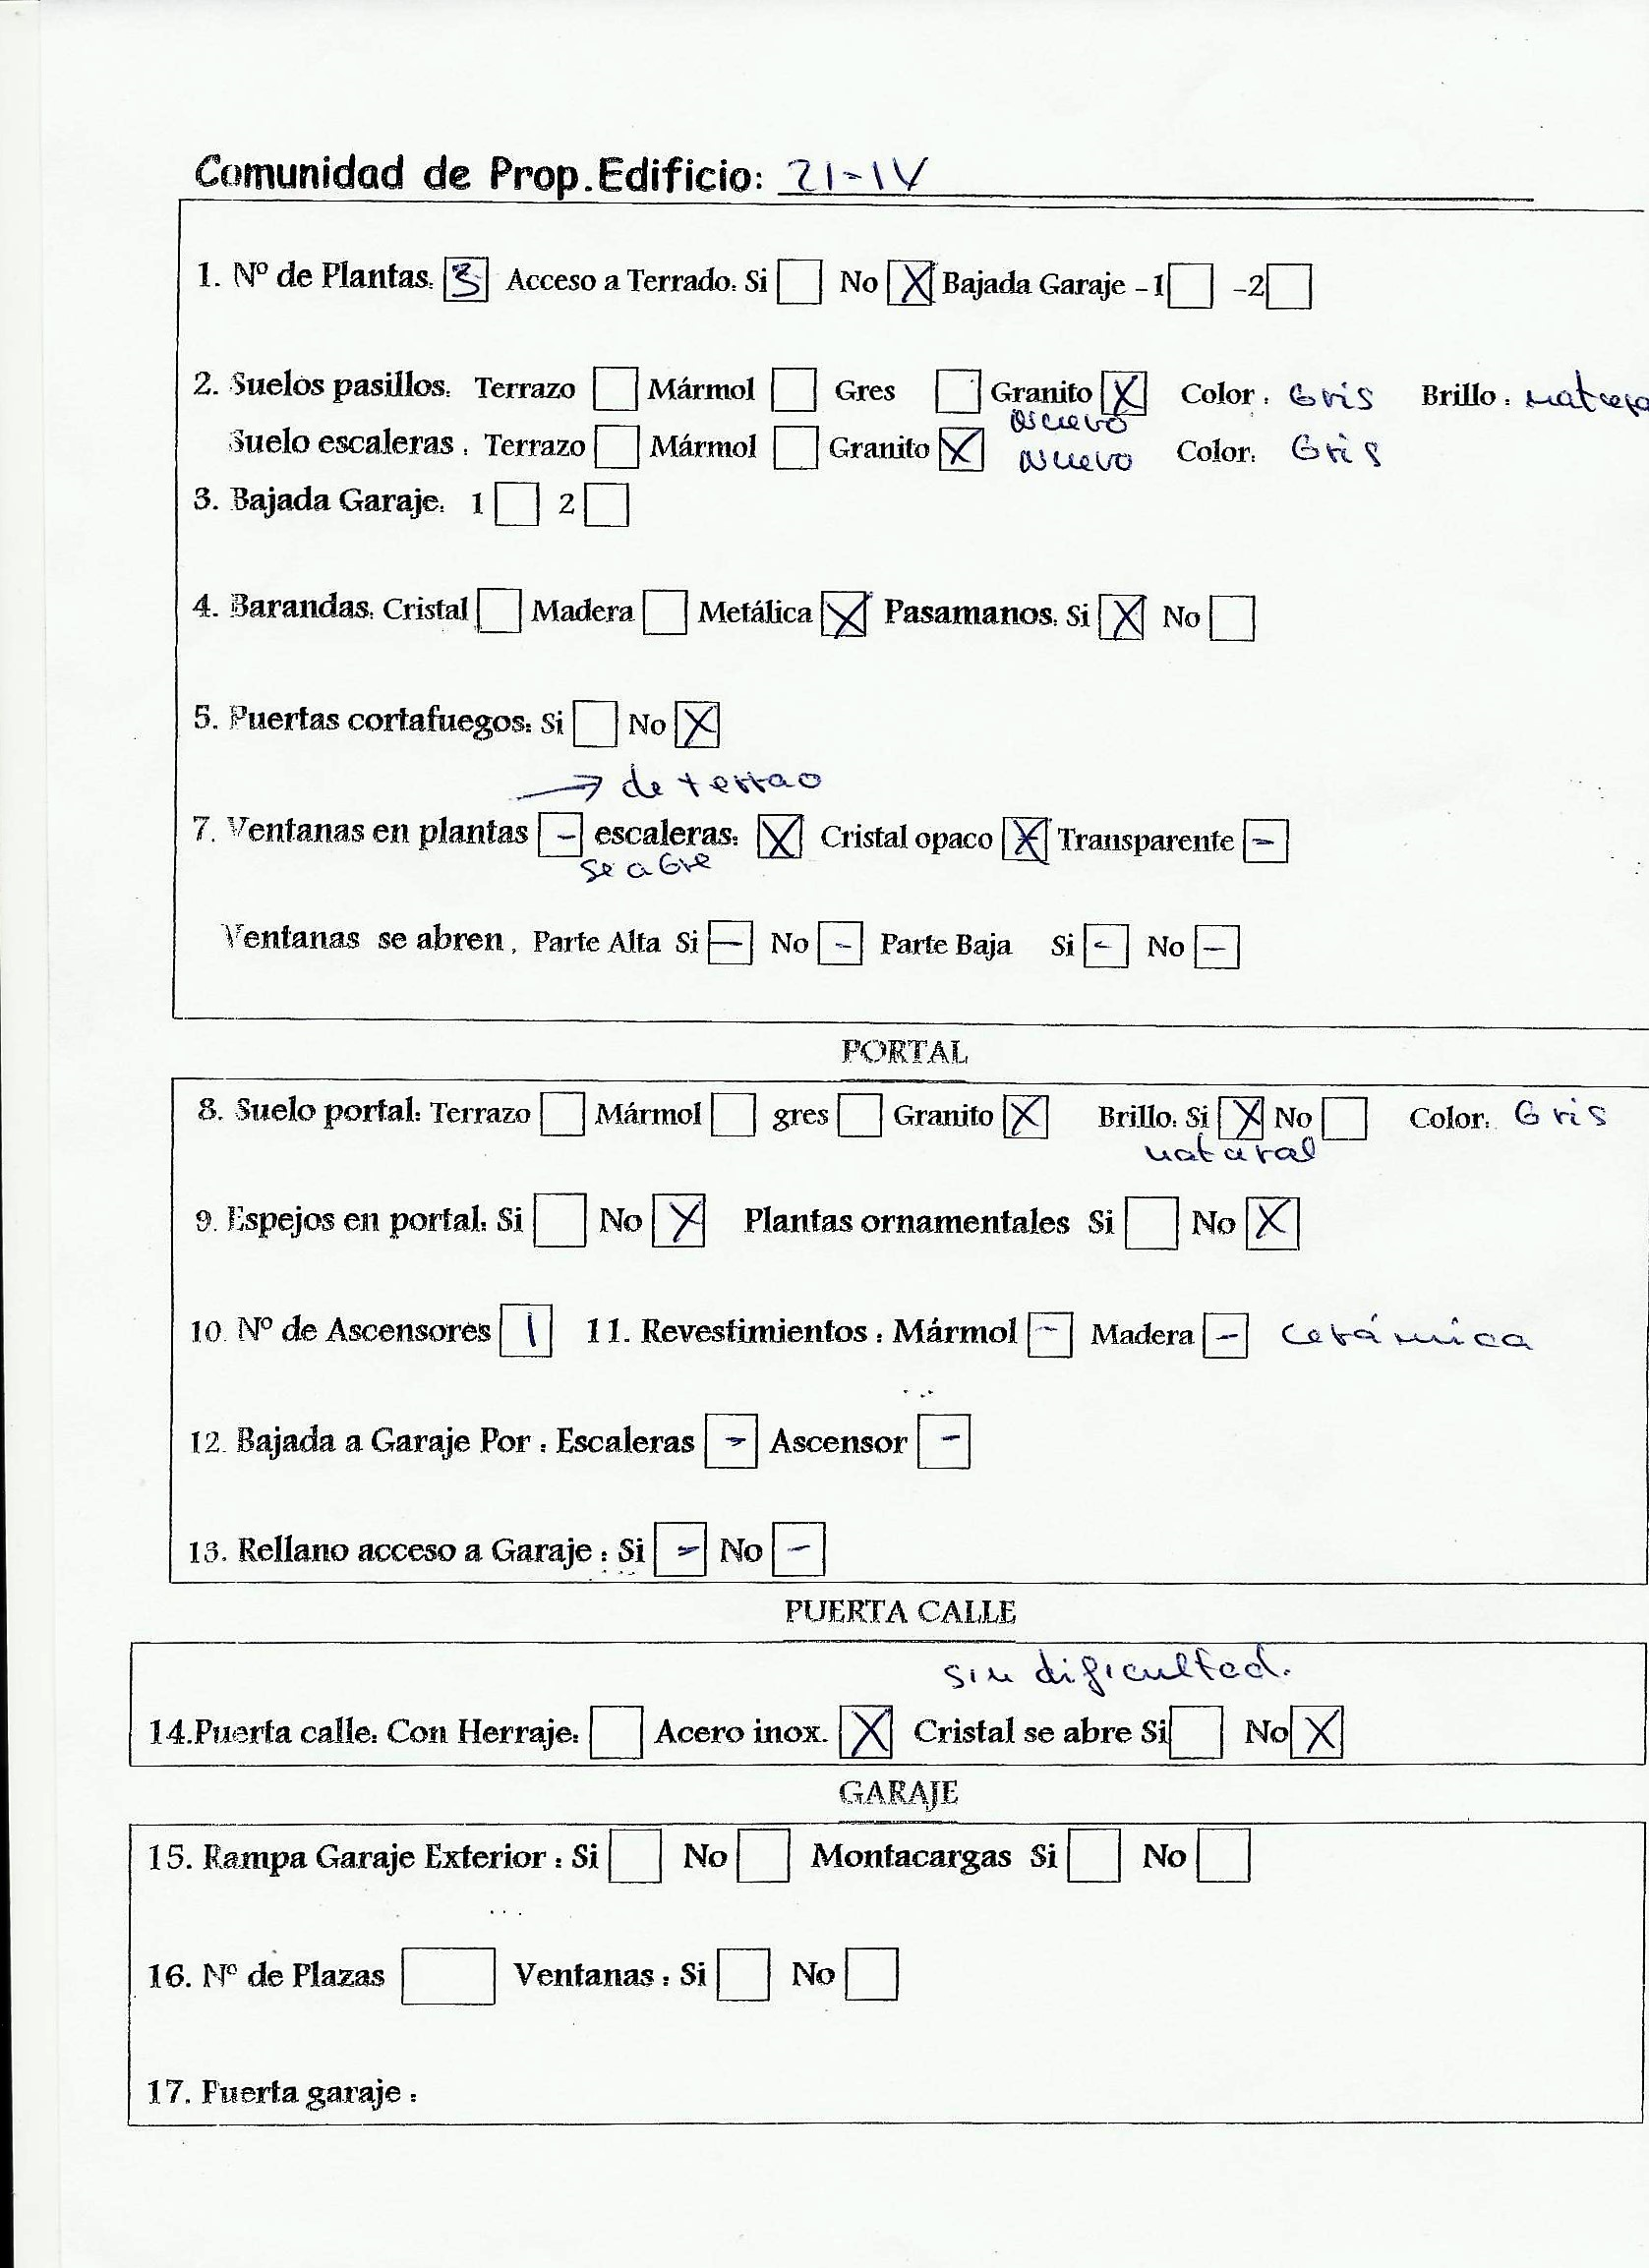 Comunidad de Prop.Edificio: 21-IV
1. Nº de Plantas: 3 Acceso a Terrado: Si No X Bajada Garaje -1 -2
2. Suelos pasillos: Terrazo Mármol Gres Granito X Color: Gris Brillo:
Suelo escaleras: Terrazo Mármol Granito X Nuevo Color: Gris
3. Bajada Garaje: 1 2
4. Barandas: Cristal Madera Metálica X Pasamanos: Si X No
5. Puertas cortafuegos: Si No X
→ de terrao
7. Ventanas en plantas - escaleras: X Cristal opaco X Transparente -
se abre
Ventanas se abren, Parte Alta Si - No - Parte Baja Si - No -
PORTAL
8. Suelo portal: Terrazo Mármol gres Granito X Brillo: Si X No Color: Gris
natural
9. Espejos en portal: Si No X Plantas ornamentales Si No X
10. Nº de Ascensores 1 11. Revestimientos: Mármol - Madera - Cerámica
12. Bajada a Garaje Por: Escaleras - Ascensor -
13. Rellano acceso a Garaje: Si - No -
PUERTA CALLE
sin dificultad.
14.Puerta calle: Con Herraje: Acero inox. X Cristal se abre Si No X
GARAJE
15. Rampa Garaje Exterior: Si No Montacargas Si No
16. Nº de Plazas Ventanas: Si No
17. Puerta garaje: